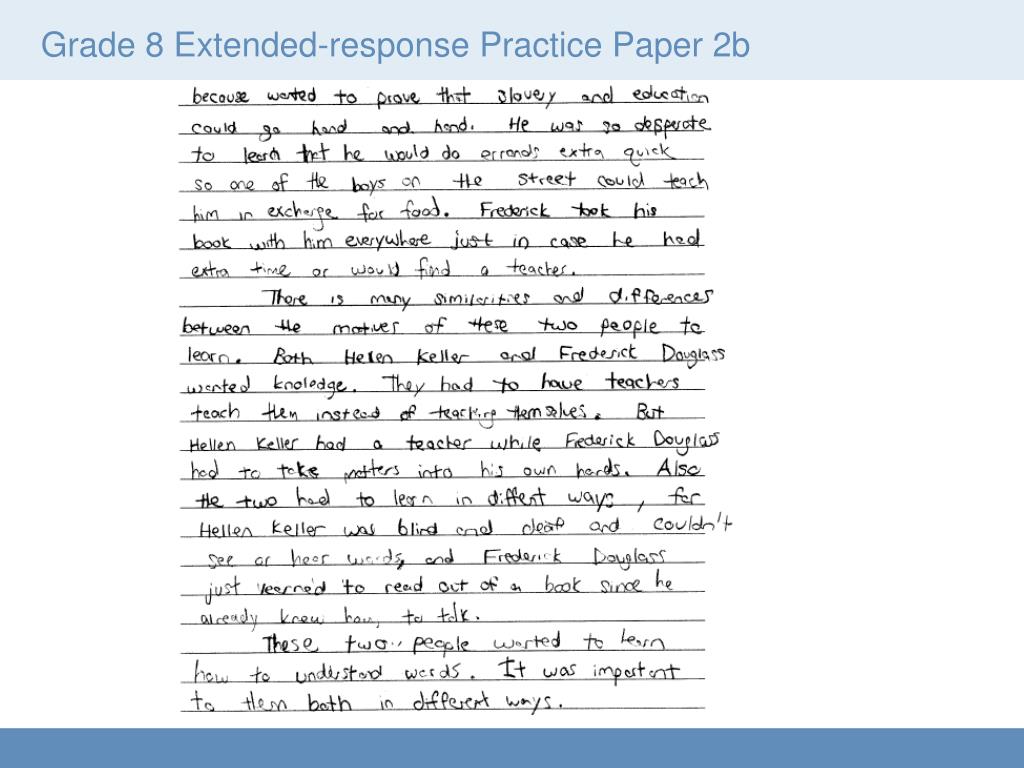 Grade 8 Extended-response Practice Paper 2b
because wanted to prove that slavery and education
could go hand and hand. He was so desperate
to learn that he would do errands extra quick
so one of the boys on the street could teach
him in exchange for food. Frederick took his
book with him everywhere just in case he had
extra time or would find a teacher.
There is many similarities and differences
between the motives of these two people to
learn. Both Helen Keller and Frederick Douglass
wanted knoledge. They had to have teachers
teach them instead of teaching themselves. But
Hellen Keller had a teacher while Frederick Douglass
had to take matters into his own hands. Also
the two had to learn in diffent ways, for
Hellen Keller was blind and deaf and couldn't
see or hear words, and Frederick Douglass
just learned to read out of a book since he
already knew how to talk.
These two people wanted to learn
how to understand words. It was important
to them both in different ways.